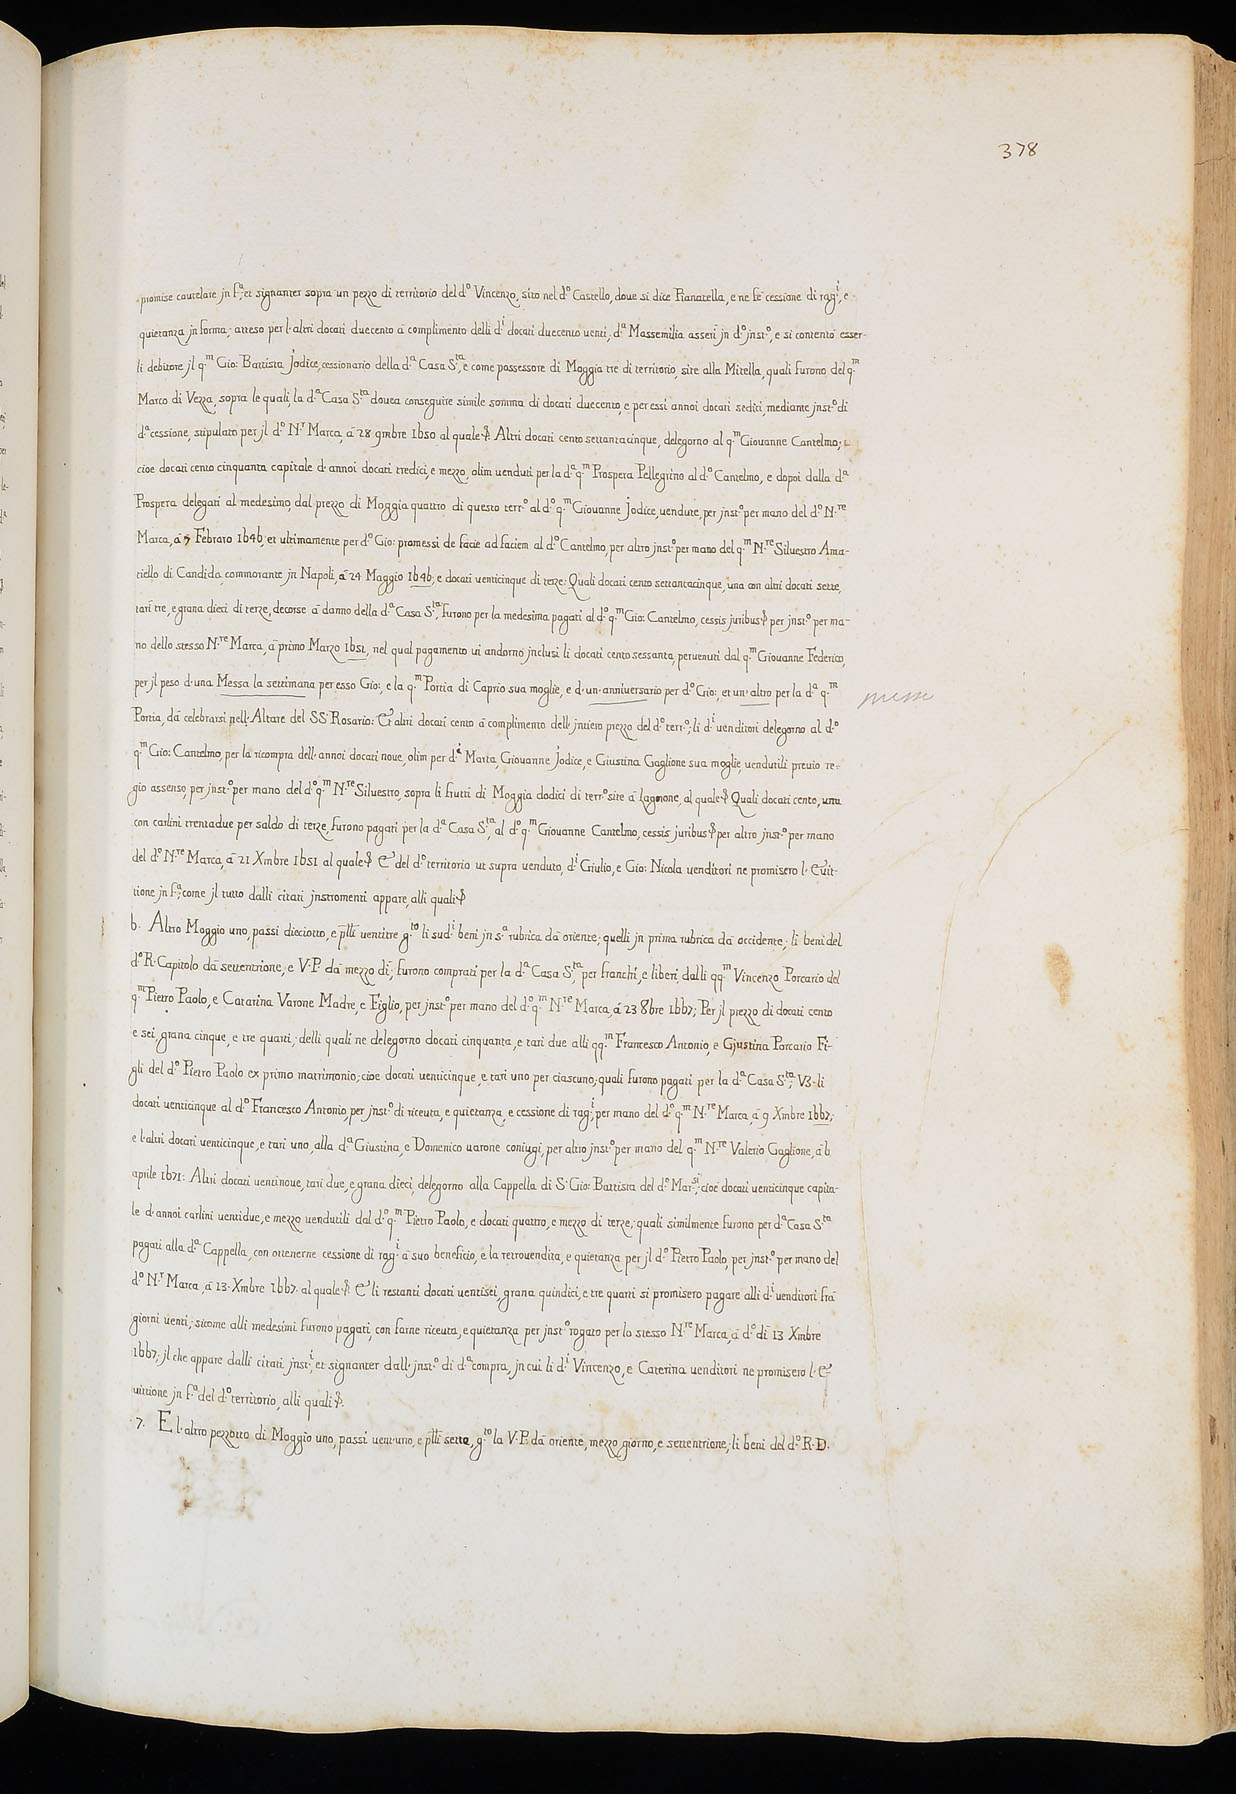 378
promise cautelare jn f.ª; et signanter sopra un pezzo di territorio del d.º Vincenzo, sito nel d.º Castello, doue si dice Pianatella, e ne fè cessione di rag.i, e
quietanza jn forma; atteso per l'altri docati duecento à complimento delli d.i docati duecento uenti, d.ª Massemilia asserì jn d.º jnst.º, e si contentò esser-
li debitore jl q.m Gio: Battista Jodice, cessionario della d.ª Casa S.ta, e come possessore di Moggia tre di territorio, site alla Mitella, quali furono del q.m
Marco di Vezza, sopra le quali, la d.ª Casa S.ta douea conseguire simile somma di docati duecento, e per essi annoi docati sedici, mediante jnst.º di
d.ª cessione, stipulato per jl d.º N.r Marca, à 28 9mbre 1650 al quale &. Altri docati cento settantacinque, delegorno al q.m Giouanne Cantelmo;
cioe docati cento cinquanta capitale d'annoi docati tredici, e mezzo, olim uenduti per la d.ª q.m Prospera Pellegrino al d.º Cantelmo, e dopoi dalla d.ª
Prospera delegati al medesimo, dal prezzo di Moggia quattro di questo terr.º al d.º q.m Giouanne Jodice, uendute, per jnst.º per mano del d.º N.re
Marca, à 7 Febraro 1646, et ultimamente per d.º Gio: promessi de facie ad faciem al d.º Cantelmo, per altro jnst.º per mano del q.m N.re Siluestro Ama-
tiello di Candida, commorante jn Napoli, à 24 Maggio 1646; e docati uenticinque di terze: Quali docati cento settantacinque, una con altri docati sette,
tarì tre, e grana dieci di terze, decorse à danno della d.ª Casa S.ta, furono per la medesima pagati al d.º q.m Gio: Cantelmo, cessis juribus & per jnst.º per ma-
no dello stesso N.re Marca, à primo Marzo 1651, nel qual pagamento ui andorno jnclusi li docati cento sessanta, peruenuti dal q.m Giouanne Federico,
per jl peso d'una Messa la settimana per esso Gio:, e la q.m Portia di Caprio sua moglie, e d'un'anniuersario per d.º Gio:, et un'altro per la d.ª q.m
messe
Portia, dà celebrarsi nell'Altare del SS. Rosario: Et altri docati cento à complimento dell'jntiero prezzo del d.º terr.º; li d.i uenditori delegorno al d.º
q.m Gio: Cantelmo, per la ricompra dell'annoi docati noue, olim per d.i Marta, Giouanne Jodice, e Giustina Gaglione sua moglie, uendutili preuio re-
gio assenso, per jnst.º per mano del d.º q.m N.re Siluestro, sopra li frutti di Moggia dodici di terr.º site à Lagnone, al quale & Quali docati cento, una
con carlini trentadue per saldo di terze, furono pagati per la d.ª Casa S.ta, al d.º q.m Giouanne Cantelmo, cessis juribus & per altro jnst.º per mano
del d.º N.re Marca, à 21 Xmbre 1651 al quale & E del d.º territorio ut supra uenduto, d.i Giulio, e Gio: Nicola uenditori ne promisero l'Euit-
tione jn f.ª; come jl tutto dalli citati jnstromenti appare, alli quali &
6. Altro Moggio uno, passi dieciotto, e p̃lli uentitre g.to li sud.i beni jn s.ª rubrica dà oriente; quelli jn prima rubrica dà occidente; li beni del
d.º R. Capitolo dà settentrione, e V.P. dà mezzo dì; furono comprati per la d.ª Casa S.ta, per franchi, e liberi, dalli qq.m Vincenzo Porcario del
q.m Pietro Paolo, e Catarina Varone Madre, e Figlio, per jnst.º per mano del d.º q.m N.re Marca, à 23 8bre 1667; Per jl prezzo di docati cento
e sei, grana cinque, e tre quarti; delli quali ne delegorno docati cinquanta, e tarì due alli qq.m Francesco Antonio, e Gjustina Porcario Fi-
gli del d.º Pietro Paolo ex primo matrimonio; cioe docati uenticinque, e tarì uno per ciascuno; quali furono pagati per la d.ª Casa S.ta; V3: li
docati uenticinque al d.º Francesco Antonio, per jnst.º di riceuta, e quietanza, e cessione di rag.i, per mano del d.º q.m N.re Marca, à 9 Xmbre 1667;
e l'altri docati uenticinque, e tarì uno, alla d.ª Giustina, e Domenico uarone coniugi, per altro jnst.º per mano del q.m N.re Valerio Gaglione, à 6
aprile 1671: Altri docati uentinoue, tarì due, e grana dieci, delegorno alla Cappella di S. Gio: Battista del d.º Mar.si; cioe docati uenticinque capita-
le d'annoi carlini uentidue, e mezzo uendutili dal d.º q.m Pietro Paolo, e docati quattro, e mezzo di terze; quali similmente furono per d.ª Casa S.ta
pagati alla d.ª Cappella, con ottenerne cessione di rag.i à suo beneficio, e la retrouendita, e quietanza per jl d.º Pietro Paolo, per jnst.º per mano del
d.º N.r Marca, à 13 Xmbre 1667. al quale & E li restanti docati uentisei, grana quindici, e tre quarti si promisero pagare alli d.i uenditori frà
giorni uenti; sicome alli medesimi furono pagati, con farne riceuta, e quietanza per jnst.º rogato per lo stesso N.re Marca, à d.º dì 13 Xmbre
1667; jl che appare dalli citati jnst.i, et signanter dall'jnst.º di d.ª compra, jn cui li d.i Vincenzo, e Caterina uenditori ne promisero l'E-
uittione jn f.ª del d.º territorio, alli quali &.
7. E l'altro pezzotto di Moggio uno, passi uent'uno, e p̃lli sette, g.to la V.P. dà oriente, mezzo giorno, e settentrione; li beni del d.º R.D.